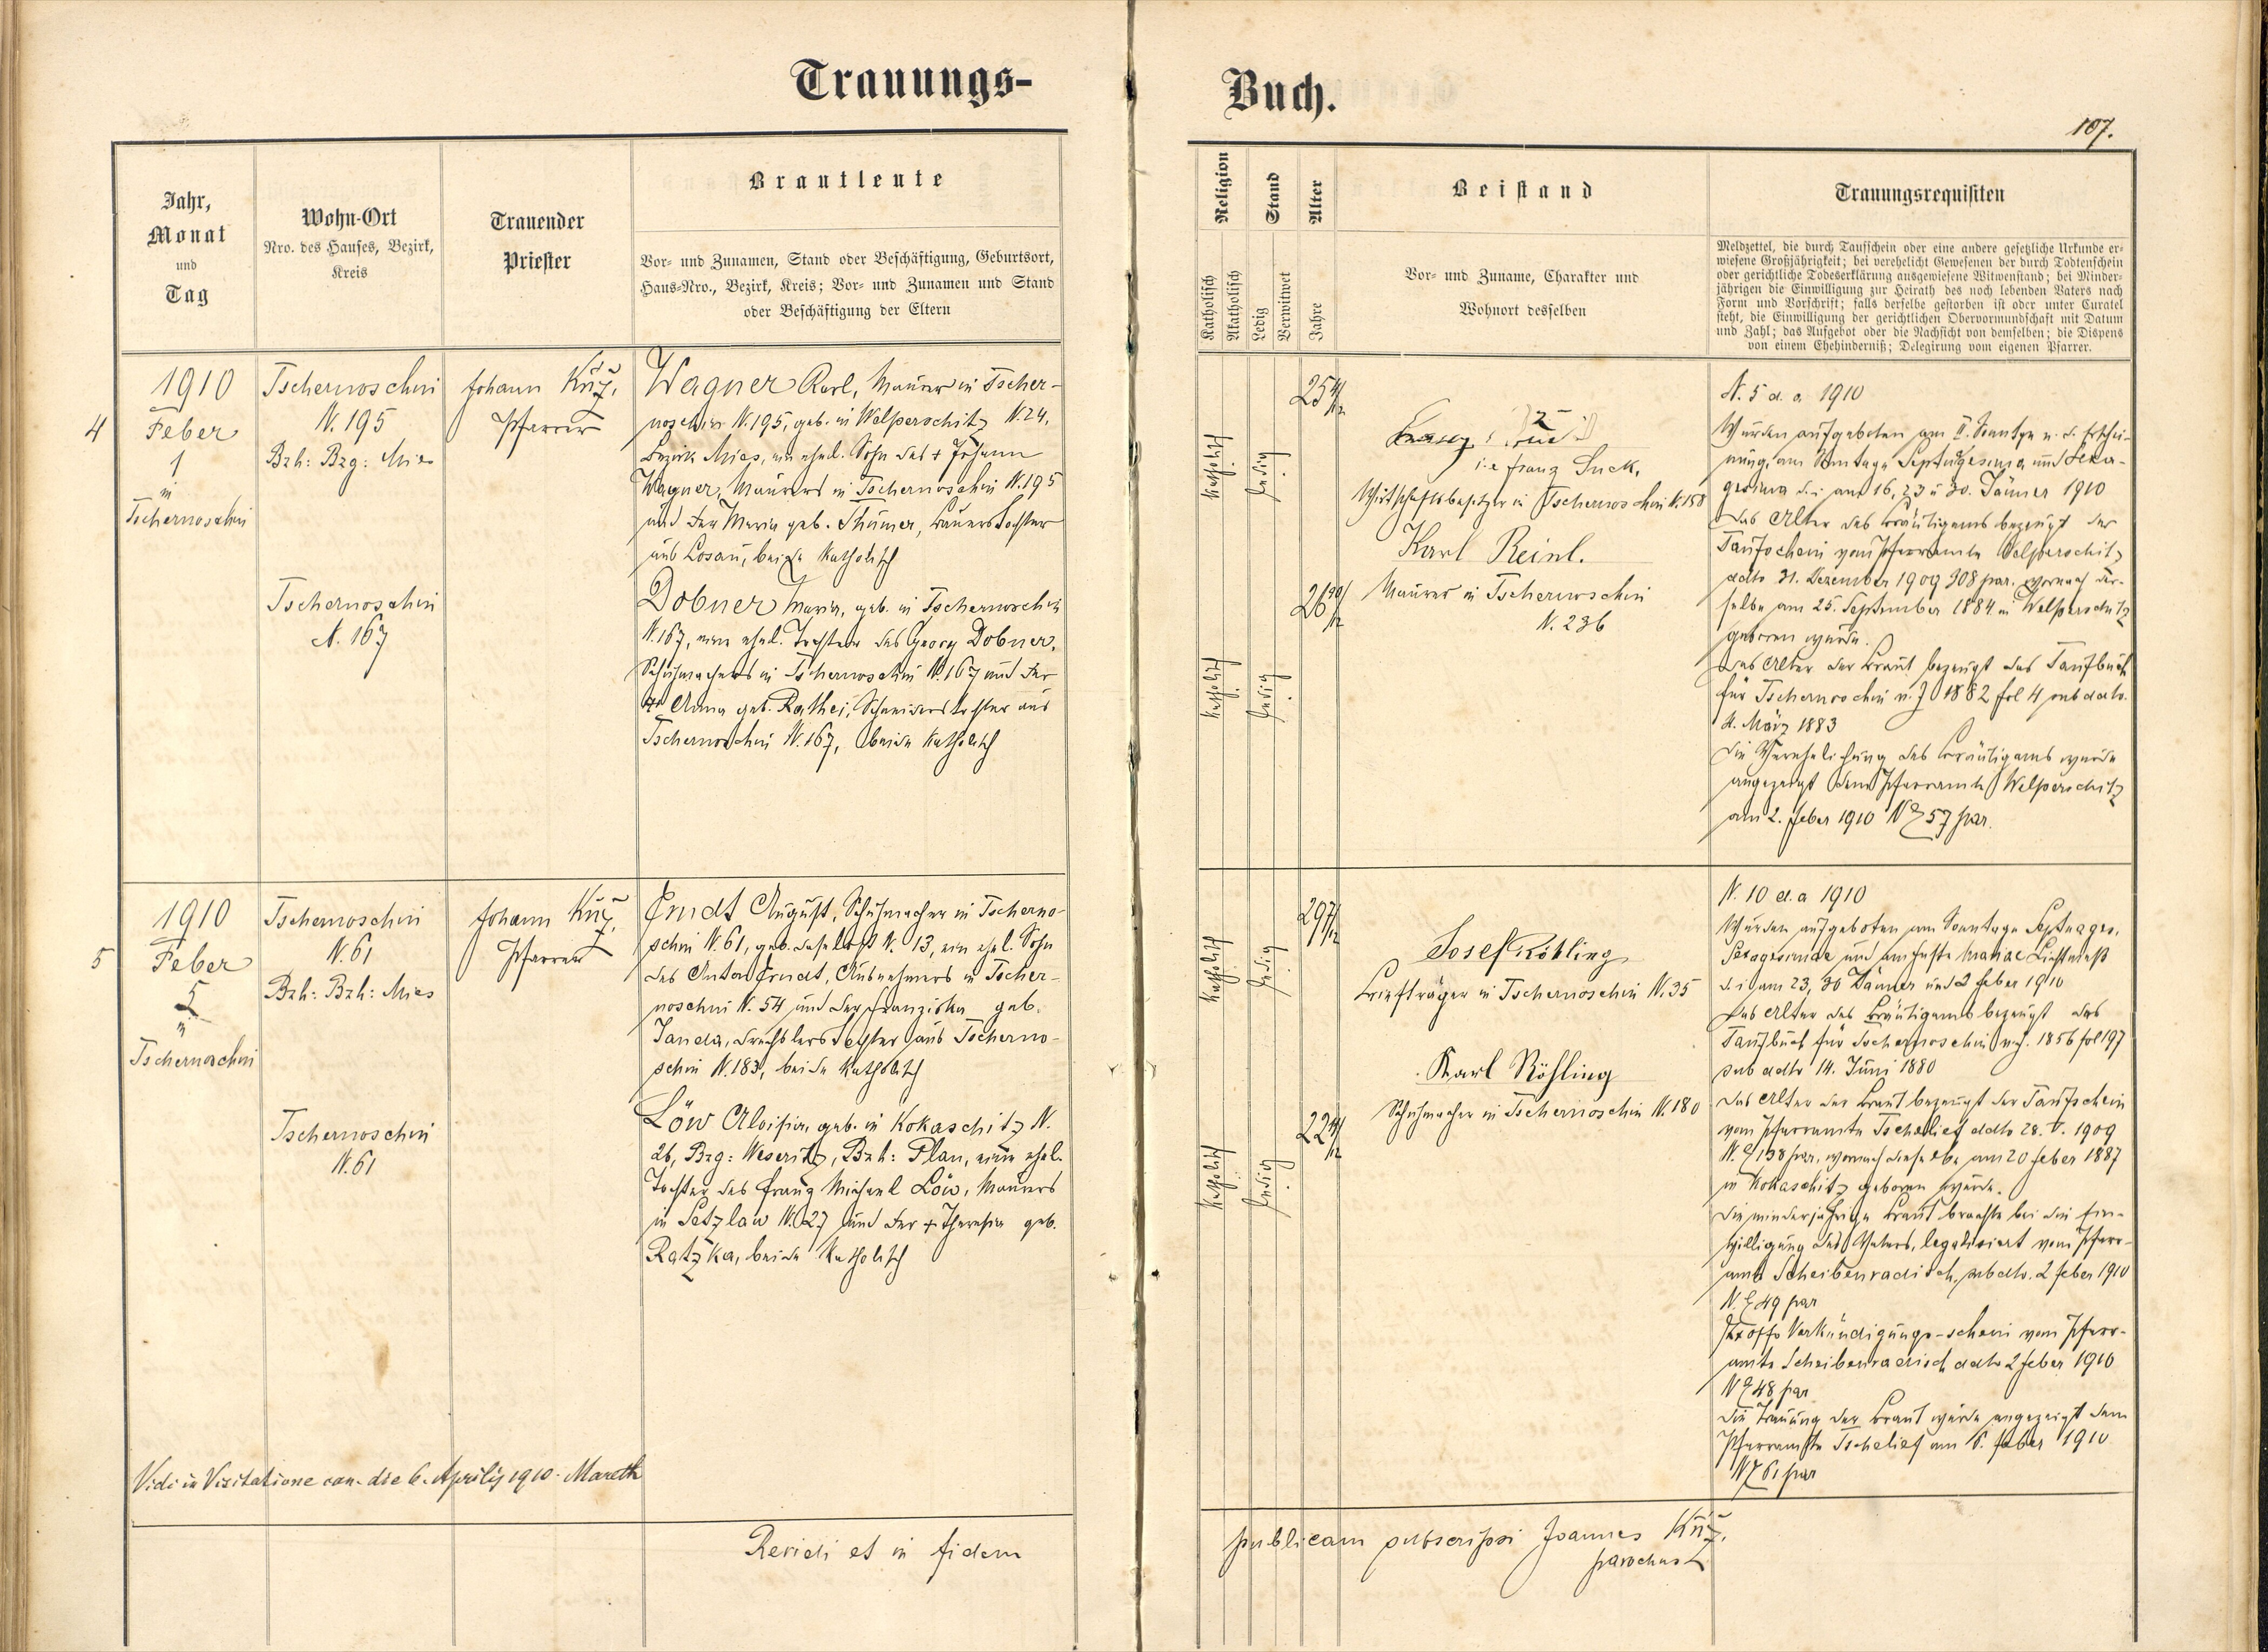 Trauungs-
Buch.
107.
Jahr,
Monat
und
Tag
Wohn-Ort
Nro. des Hauses, Bezirk,
Kreis
Trauender
Priester
Brautleute
Vor- und Zunamen, Stand oder Beschäftigung, Geburtsort,
Haus-Nro., Bezirk, Kreis; Vor- und Zunamen und Stand
oder Beschäftigung der Eltern
Religion
Katholisch
Akatholisch
Stand
Ledig
Verwitwet
Alter
Jahre
Beistand
Vor- und Zuname, Charakter und
Wohnort desselben
Trauungsrequisiten
Meldzettel, die durch Taufschein oder eine andere gesetzliche Urkunde er-
wiesene Großjährigkeit; bei verehelicht Gewesenen der durch Todtenschein
oder gerichtliche Todeserklärung ausgewiesene Witwenstand; bei Minder-
jährigen die Einwilligung zur Heirath des noch lebenden Vaters nach
Form und Vorschrift; falls derselbe gestorben ist oder unter Curatel
steht, die Einwilligung der gerichtlichen Obervormundschaft mit Datum
und Zahl; das Aufgebot oder die Nachsicht von demselben; die Dispens
von einem Ehehinderniß; Delegirung vom eigenen Pfarrer.
4
1910
Feber
1
in
Tschernoschin
Tschernoschin
N. 195
Bzh: Bzg: Mies
Tschernoschin
N. 167
Johann
Pfarrer
Wagner Karl, Maurer in Tscher-
noschin N. 195, geb. in Welperschitz N. 24,
Bezirk Mies, ein ehel. Sohn des + Johann
Wagner, Maurers in Tschernoschin N. 195
und der Maria geb. Thümer, Bauerstochter
aus Losau, beide katholisch
Dobner Maria, geb. in Tschernoschin
N. 167, eine ehel. Tochter des Georg Dobner,
Schuhmachers in Tschernoschin N. 167 und der
+ Anna geb. Rathei, Schneiderstochter aus
Tschernoschin N. 167, beide katholisch
katholisch
ledig
25 4/12
katholisch
ledig
26 10/12
i.e Franz Suck,
Wirtschaftsbesitzer in Tschernoschin N. 158
Karl Reinl.
Maurer in Tschernoschin
N. 236
N. 5 d. a. 1910
Wurden aufgeboten am II. Sonntge n. d. Erschei-
nung, am Sonntage Septuagesima und Sexa-
gesima d. i am 16, 23 u 30. Jänner 1910
Das Alter des Bräutigams bezeugt der
Taufschein vom Pfarramte Welperschitz
ddto 31. Dezember 1909 308 par. wornach der-
selbe am 25. September 1884 in Welperschitz
geboren wurde.
Das Alter der Braut bezeugt das Taufbuch
für Tschernoschin v. J. 1882 fol 4 sub ddto.
4. März 1883
Die Verehelichung des Bräutigams wurde
angezeigt dem Pfarramte Welperschitz
am 2. Feber 1910 N 57 par.
5
1910
Feber
5
in
Tschernoschin
Tschernoschin
N. 61
Bzh: Bzh: Mies
Tschernoschin
N. 61
Johann
Pfarrer
August, Schuhmacher in Tscherno-
schin N. 61, geb. daselbst N. 13, ein ehel. Sohn
des Anton, Ausnehmers in Tscher-
noschin N. 54 und der Franziska geb.
Janda, Drechslerstochter aus Tscherno-
schin N. 183, beide katholisch
Löw Aloisia, geb. in Kokaschitz N.
26, Bzg: Weseritz, Bzh: Plan, eine ehel.
Tochter des Franz Michael Löw, Maurers
in Setzlaw N. 27 und der + Theresia geb.
Ratzka, beide katholisch
katholisch
ledig
29 7/12
katholisch
ledig
22 4/12
Josef Röhling
Briefträger in Tschernoschin N. 35
Karl Röhling
Schuhmacher in Tschernoschin N. 180
N. 10 d. a 1910
Wurden aufgeboten am Sonntage Septuages.
Sexagesimae und am Feste Mariae Lichtmeß
d. i am 23, 30 Jänner und 2 Feber 1910
Das Alter des Bräutigams bezeugt das
Taufbuch für Tschernoschin v. J. 1856 fol 197
sub ddto 14. Juni 1880
Das Alter der Braut bezeugt der Taufschein
vom Pfarramte Tschelief ddto 28. V. 1909
N. 138 par, wornach dieselbe am 20 Feber 1887
in Kokaschitz geboren wurde.
Die minderjährige Braut brachte bei die Ein-
willigung des Vaters, legalisiert vom Pfarr-
amte Scheibenradisch, sub dto. 2 Feber 1910
N. 49 par
Ex offo Verkündigungs-schein vom Pfarr-
amte Scheibenradisch ddto 2 Feber 1910
N 48 par
Die Trauung der Braut wurde angezeigt dem
Pfarramte Tschelief am 6. Feber 1910
N 61 par
Vidi in Visitatione can. die 6. Aprilis 1910. Mareth
Revidi et in fidem
publicam subscripsi Joannes
parochus